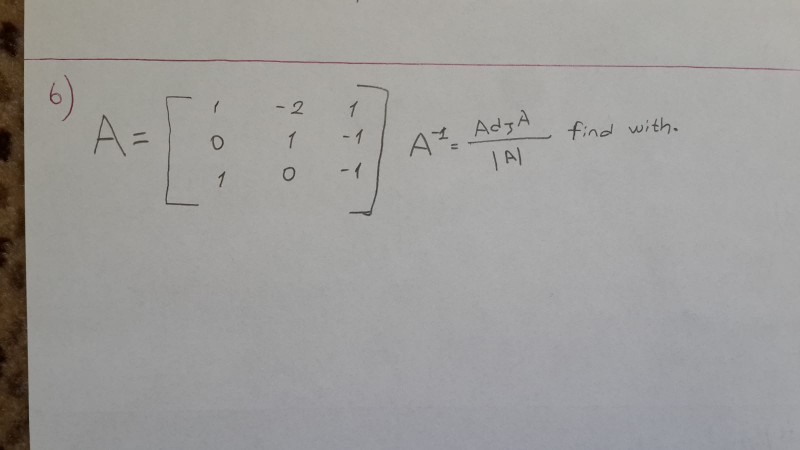 6)
A = [ 1 -2 1
0 1 -1
1 0 -1 ]
A⁻¹ = Adj A / |A| find with.